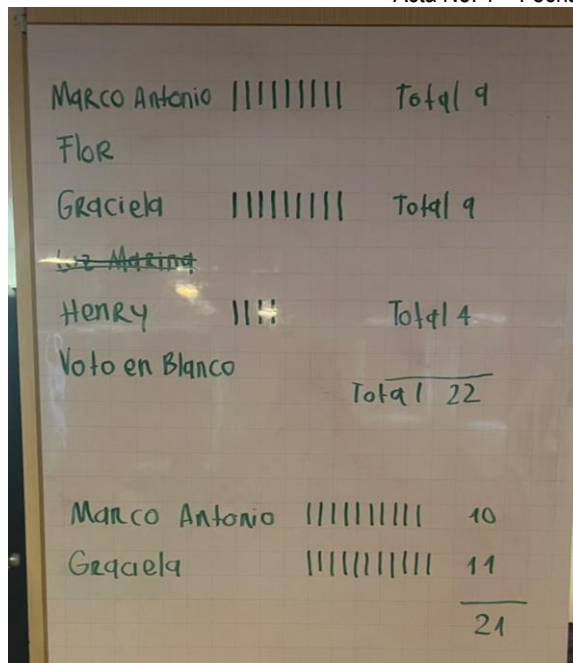 Marco Antonio ||||||||| Total 9
Flor
Graciela ||||||||| Total 9
Luz Marina
Henry |||| Total 4
Voto en Blanco
Total 22
Marco Antonio |||||||||| 10
Graciela ||||||||||| 11
21